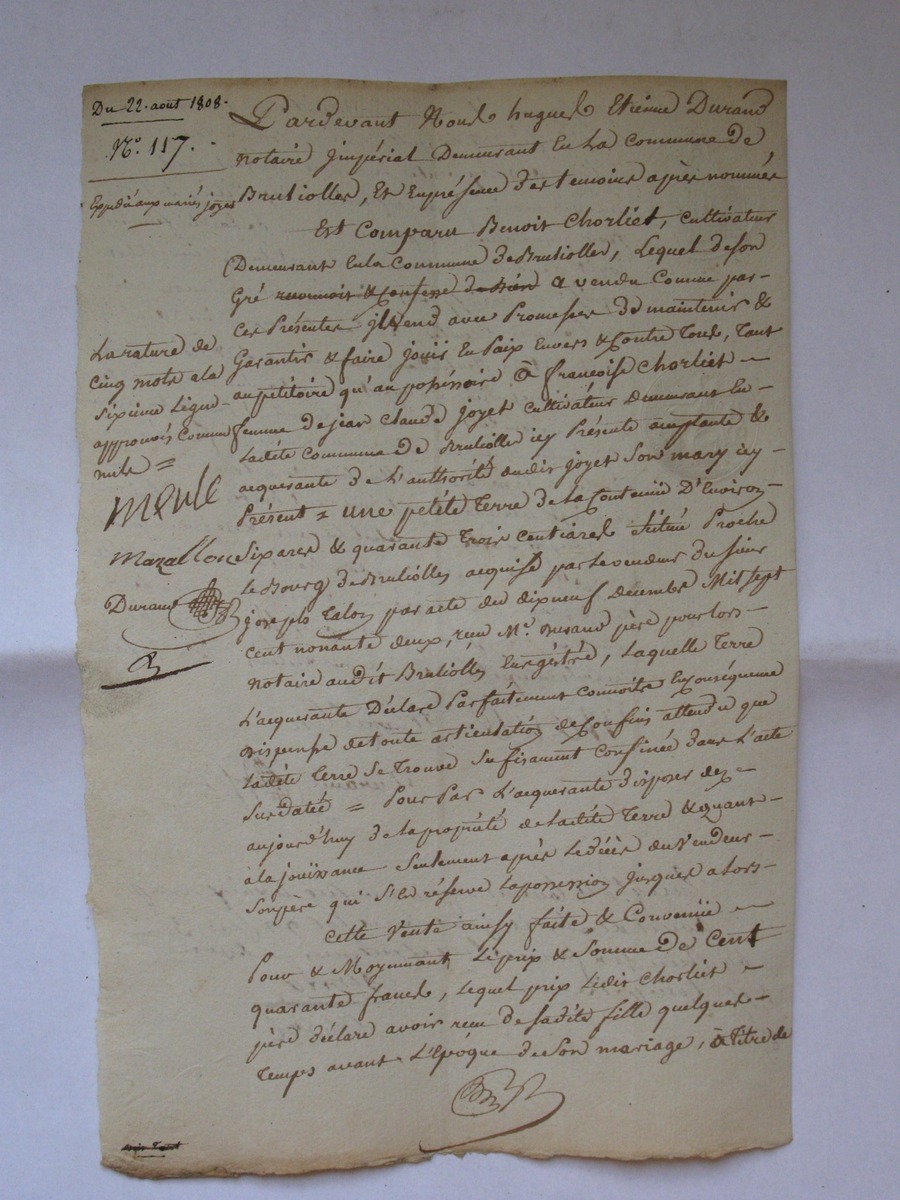 Du 22. août 1808.
N°. 117.
Expédié aux mariés joyet
La rature de
cinq mots a la
sixieme Ligne
approuvés Comme
nuls =
Merle
Mazallon
Durand
Pardevant Nous hugues Etienne Durand
notaire jmpérial Demeurant En La Commune de
Brulliolles, Et En présence des temoins après nommés
Est Comparu Benoit Chorliet, Cultivateur
Demeurant En La Commune de Brulliolles, Lequel de son
Gré reconnoit & Confesse a vendu Comme par
Ces Présentes jl vend avec Promesses de maintenir &
Garantir & faire jouir En Paix Envers & Contre Tous, Tant
au petitoire qu'au possessoire à françoise Chorliet
femme de jean Claude joyet cultivateur Demeurant En
Ladite Commune de Brulliolles icy Présente acceptante &
acquerante de L'authorité dudit joyet Son mary icy
Présent = une petite Terre de la Contenüe D'Environ
Six ares & quarante Trois Centiares Située Proche
Le Bourg de Brulliolles acquise par Le vendeur du sieur
joseph Talon par acte du dixneuf decembre Mil sept
Cent nonante deux, reçu Me. Durand père pour lors
notaire audit Brulliolles Enregistré, Laquelle Terre
L'acquerante Déclare Parfaitement connoitre En conséquence
Dispense de toute articulation de Confins attendu que
Ladite terre Se Trouve Sufisament Confinée dans L'acte
Sus datée = Pour Par L'acquerante disposer dez
aujourd'huy de la propriété de Ladite Terre & quant
a la jouissance Seulement après Le décès du Vendeur
Son père qui S'En réserve La possession jusques alors
Cette Vente ainsy faite & Convenüe
Pour & Moyennant Le prix & Somme de Cent
quarante francs, Lequel prix Ledit Chorliet
père déclare avoir reçu de Sadite fille quelques
Temps avant L'Epoque de Son mariage, à Titre de